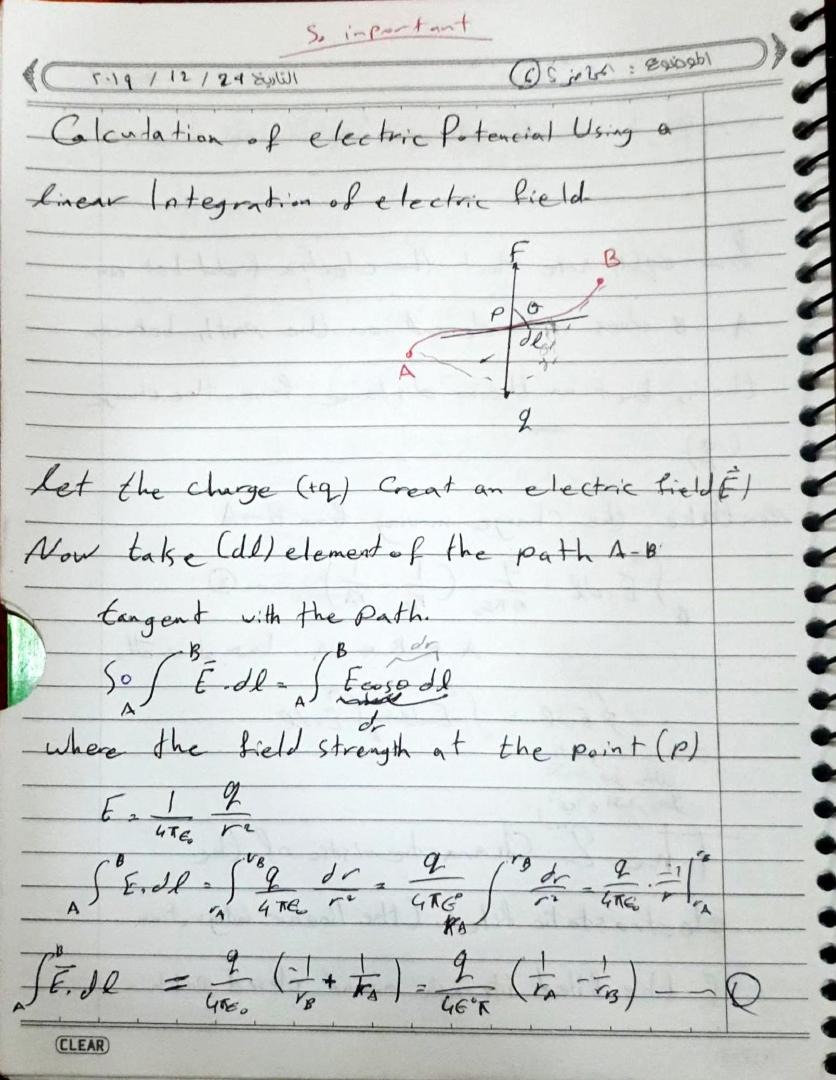 So inportant
التاريخ ٢٠١٩ / 12 / 29
الموضوع :
Calculation of electric Potencial Using a
linear Integration of electric field
F
B
P θ
dl
A
q
let the charge (+q) Creat an electric field E⃗)
Now take (dl) element of the path A-B
tangent with the path.
So ∫_A^B E⃗ . dl = ∫_A^B E cosθ dl
dr
where the field strength at the point (p)
E = 1/4πϵ₀ q/r²
∫_A^B E . dl = ∫_{rA}^{rB} q/4πϵ₀ dr/r² = q/4πϵ° ∫_{rA}^{rB} dr/r² = q/4πϵ₀ . -1/r |_{rA}^{rB}
∫_A^B E⃗ . dl = q/4πϵ₀ (-1/rB + 1/rA) = q/4ϵ°π (1/rA - 1/rB) --- ①
CLEAR